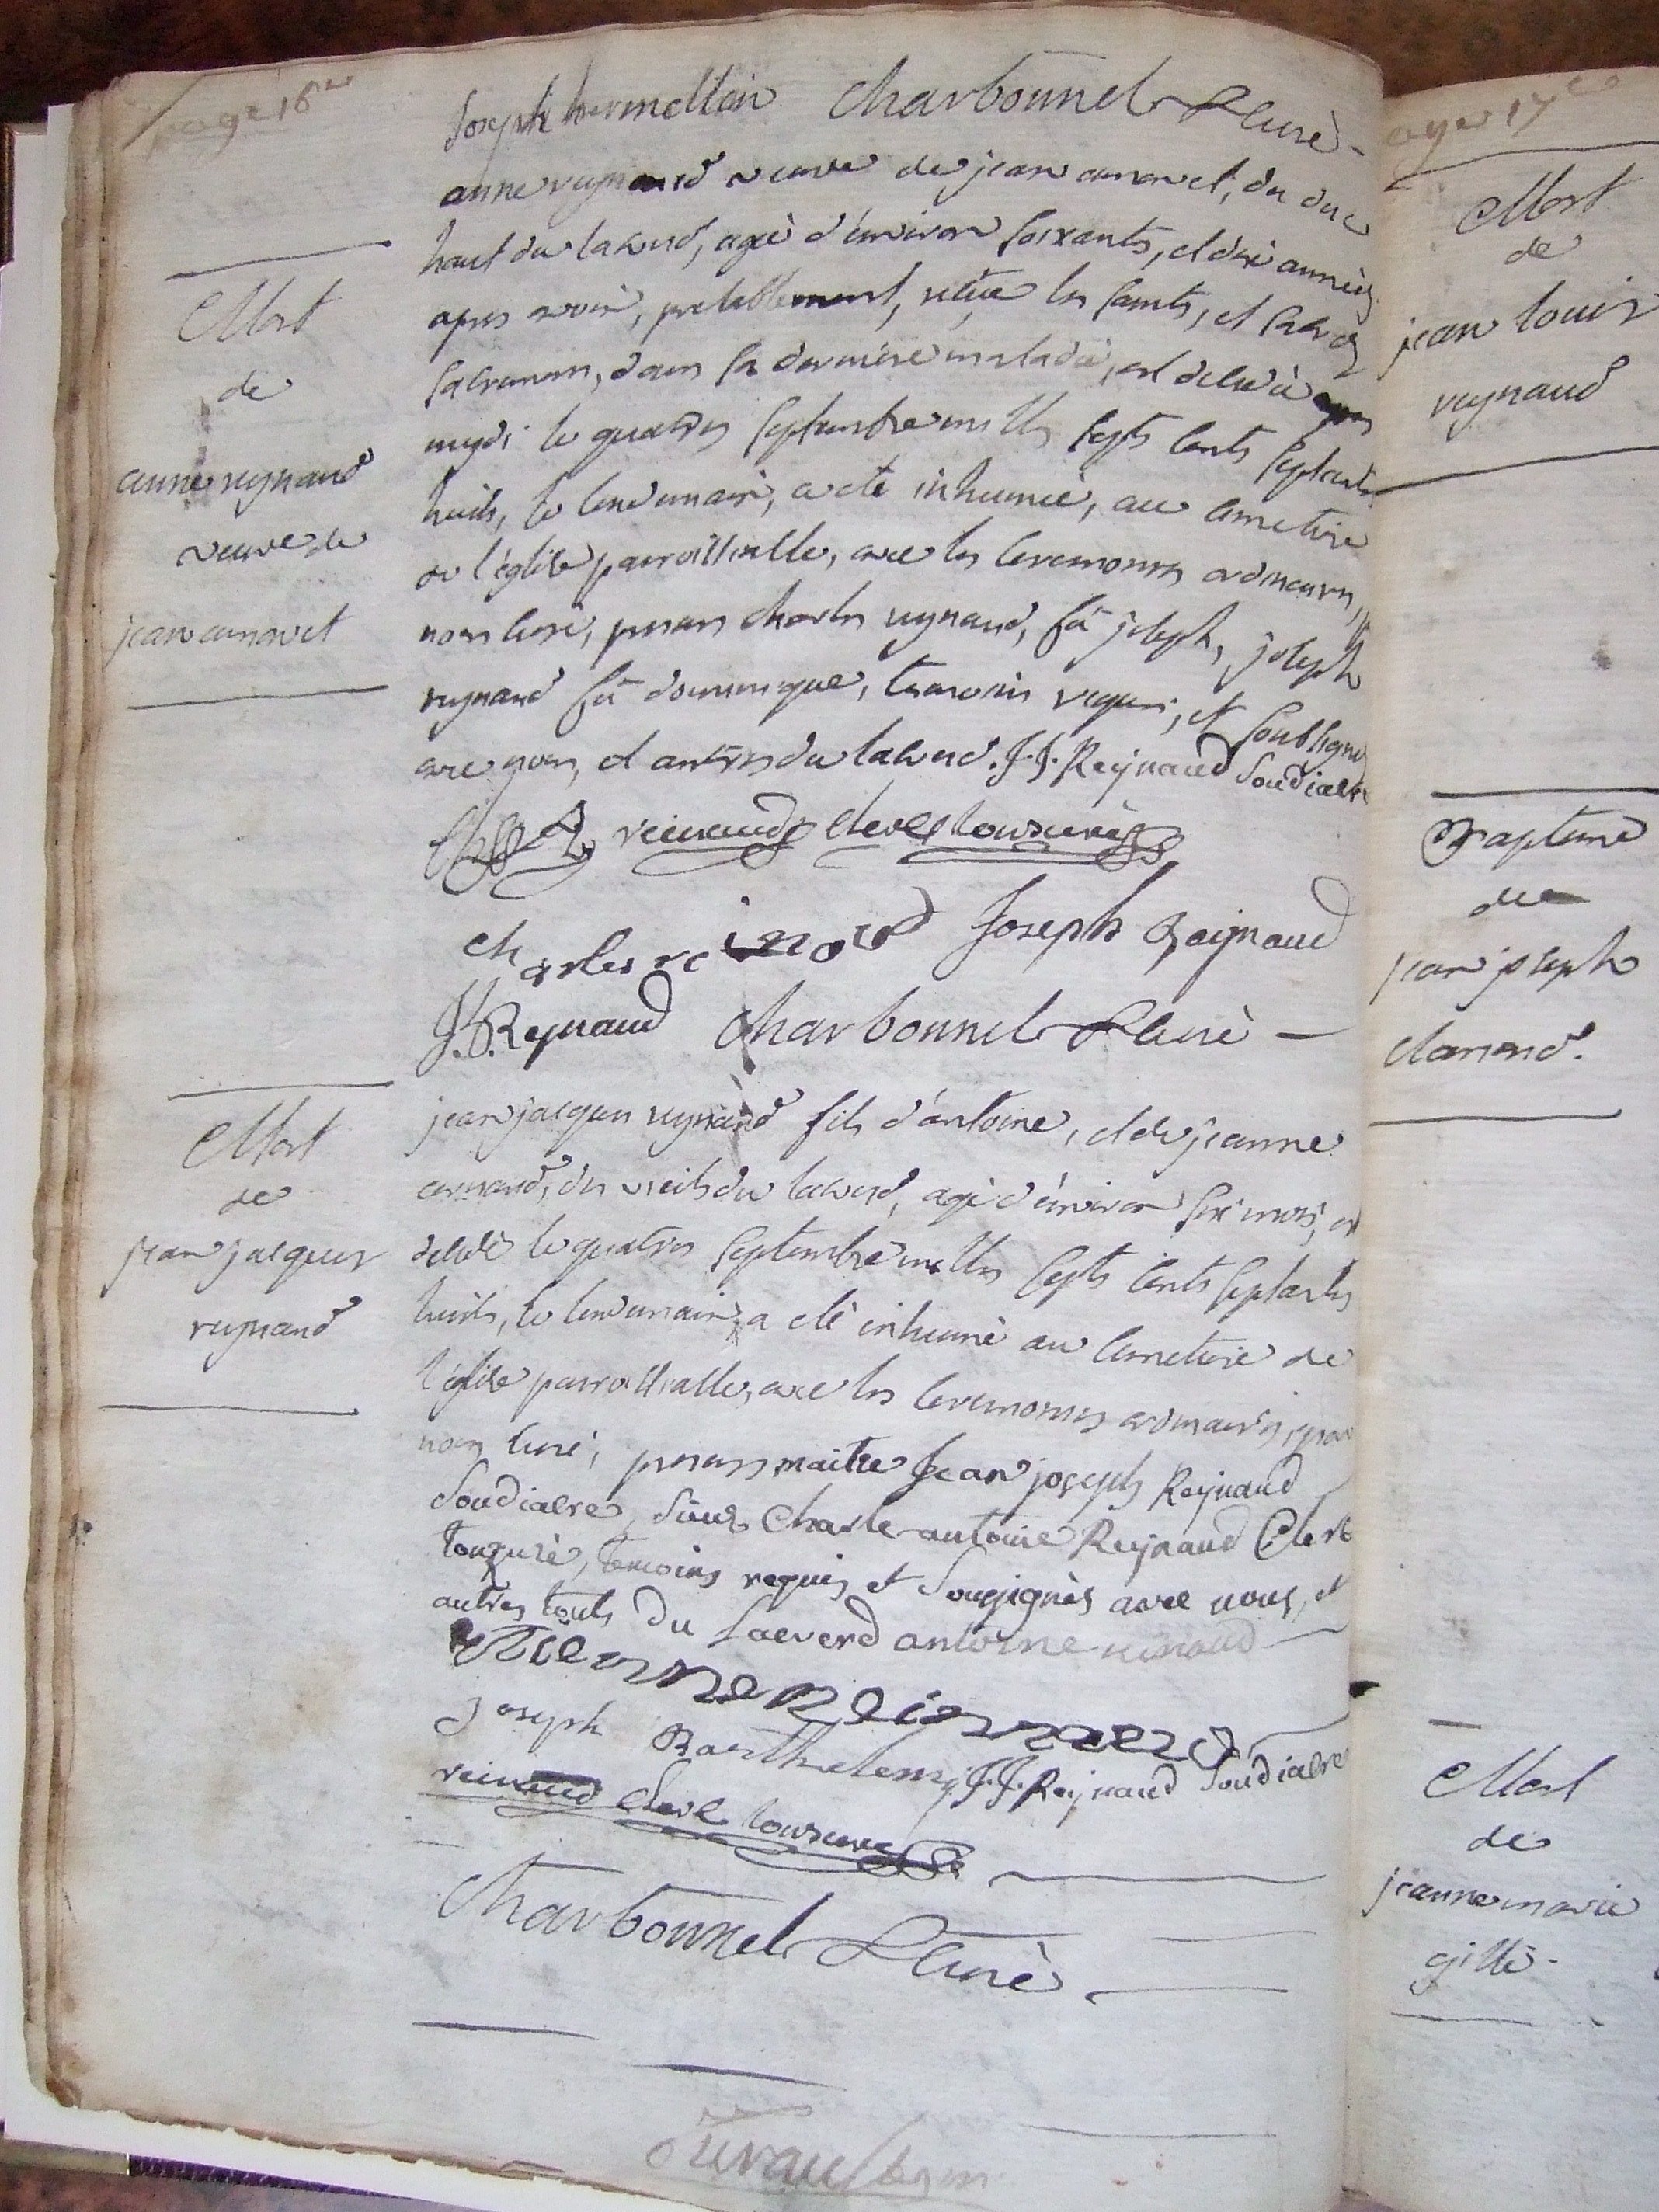 page 16me
Joseph hermelltin Charbonnel Curé
Mort
de
anne reynaud
veuve de
jean arnovet
anne reynaud veuve de jean arnovet, du duc
haut du laverd, agée d'énviron soixante, et dix années
apres avoir, prelablement, reçue les saints, et sacrés
sacremens, dans sa derniere maladie, est decedée
mydi le quatres septembre milles septs cents septante
huits, le lendemain, a eté inhumée, au cimetiere
de l'église parroissialle, avec les ceremonies ordinaires, par
nous curé, presens charles reynaud, fû joseph, joseph
reynaud fû dominique, temoins requis, et soubsignés
avec nous, et autres du laverd. J.J. Reynaud Soudiacre
reinaud clerc tonsuré
charles reinaud Joseph Raignaud
J. Reynaud Charbonnel Curé
Mort
de
jean jacques
reynaud
jean jacques reynaud fils d'antoine, et de jeanne
arnaud, des vieils du laverd, agé d'énviron six mois, est
decedé le quatres septembre milles septs cents septantes
huits, le lendemain, a eté inhumé au cimetiere de
l'église parroissialle, avec les ceremonies ordinaires, par
nous curé, presens maitre Jean joseph Reynaud
Soudiacre, Sieur Charle antoine Reynaud Clerc
tonsuré, temoins requis et Sousignés avec nous, et
autres touts du Laverd antoine reinaud
etienne reinnaud
Joseph Barthelemy J.J. Reynaud Soudiacre
reinaud clerc tonsuré
Charbonnel Curé
page 17
Mort
de
jean louis
reynaud
Bapteme
de
jean joseph
clariond.
Mort
de
jeanne marie
gilli.